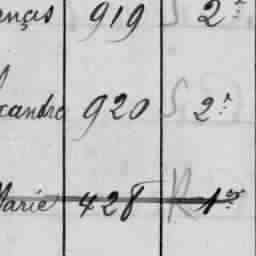 ançois 919 S 2ᵉ
exandre 920 S 2ᵉ
Marie 428 R 1ᵉʳ